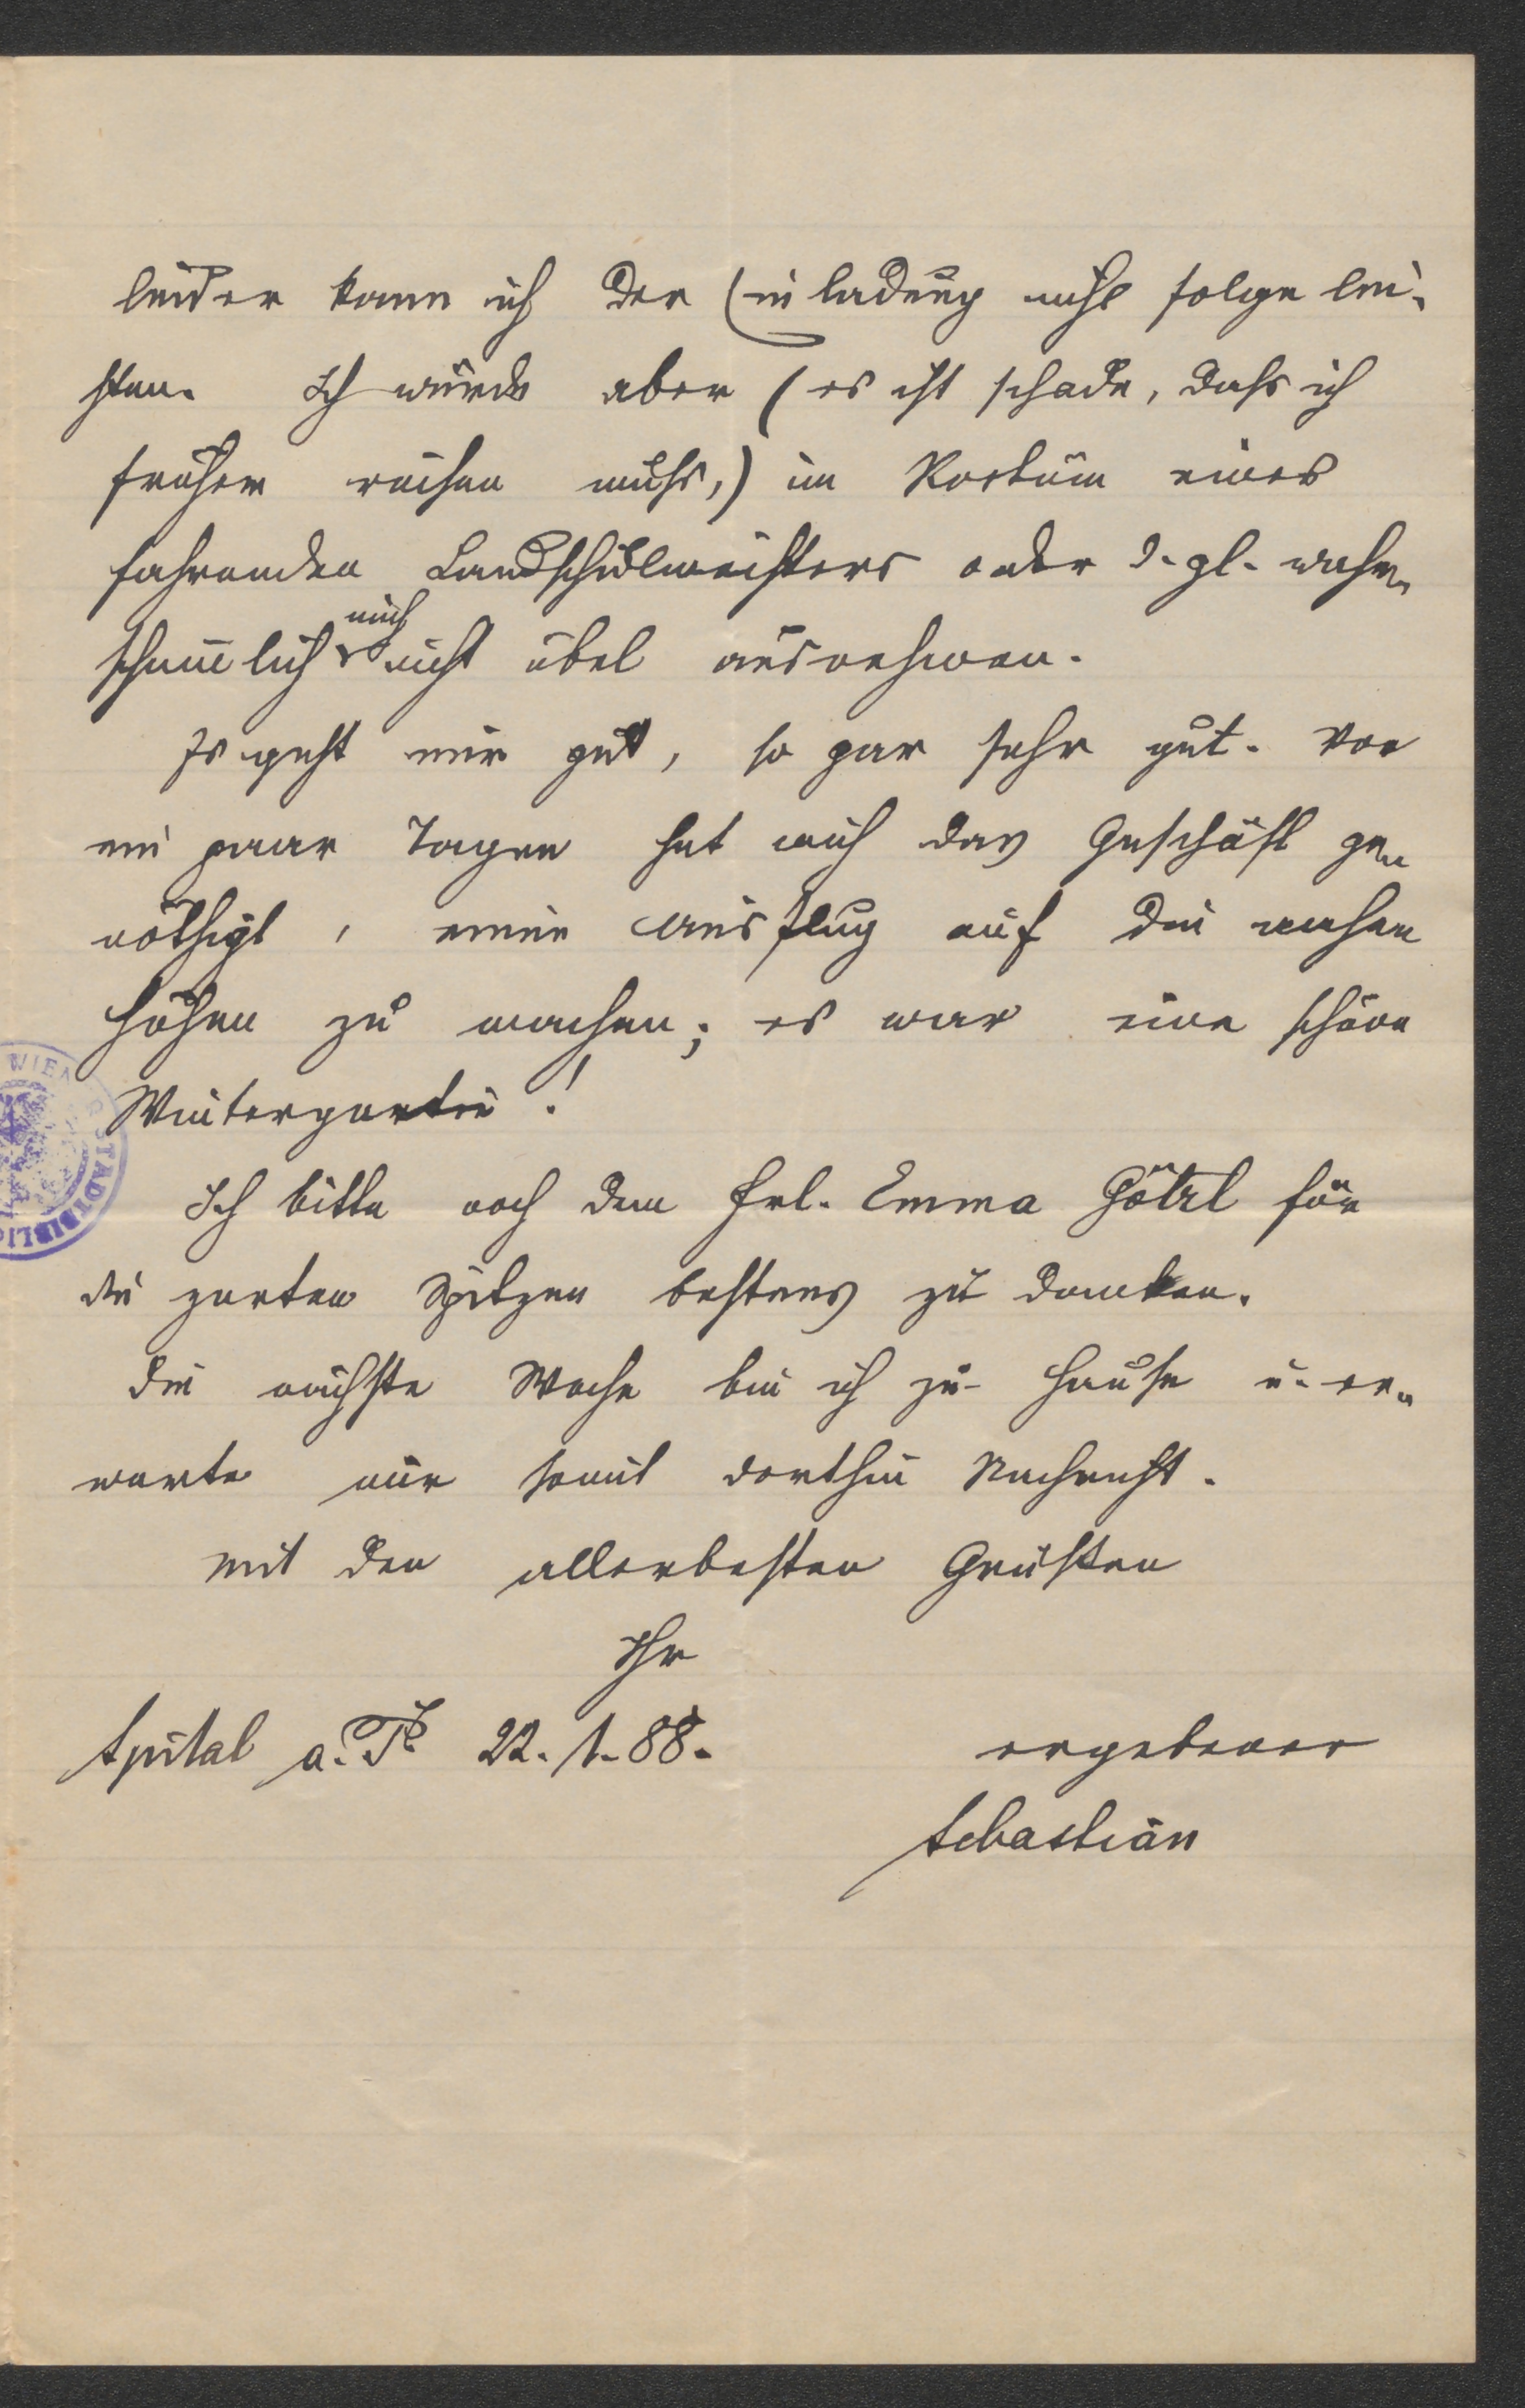 leider kann ich der Einladung nicht folge lei-
sten. Ich würde aber (es ist schade, dass ich
früher reisen muss,) im Kostüm eines
fahrenden Landschulmeisters oder d. gl. wahr-
mich
scheinlich nicht übel ausnehmen.
Es geht mir gut, so gar sehr gut. Vor
ein paar Tagen hat mich das Geschäft ge-
nöthigt, einen Ausflug auf die nahen
Höhen zu machen; es war eine schöne
Winterpartie!
Ich bitte noch dem Frl. Emma Hötzl für
die zarten Spitzen bestens zu danken.
Die nächste Woche bin ich zu Hause u. er-
warte nur somit dorthin Nachricht.
Mit den allerbesten Grüßen
Ihr
Spital a. P. 22. 1. 88.
ergebener
Sebastian
WIENER STADTBIBLIO